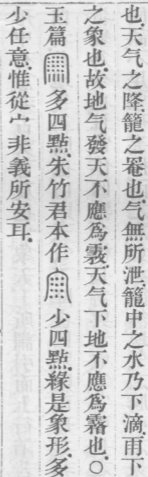 也、天气之降、籠之罨也、气無所泄、籠中之水乃下滴、雨下
之象也、故地气發天不應爲霚、天气下地不應爲霿也、○
玉篇多四點、朱竹君本作少四點、緣是象形、多
少任意、惟從宀非義所安耳、